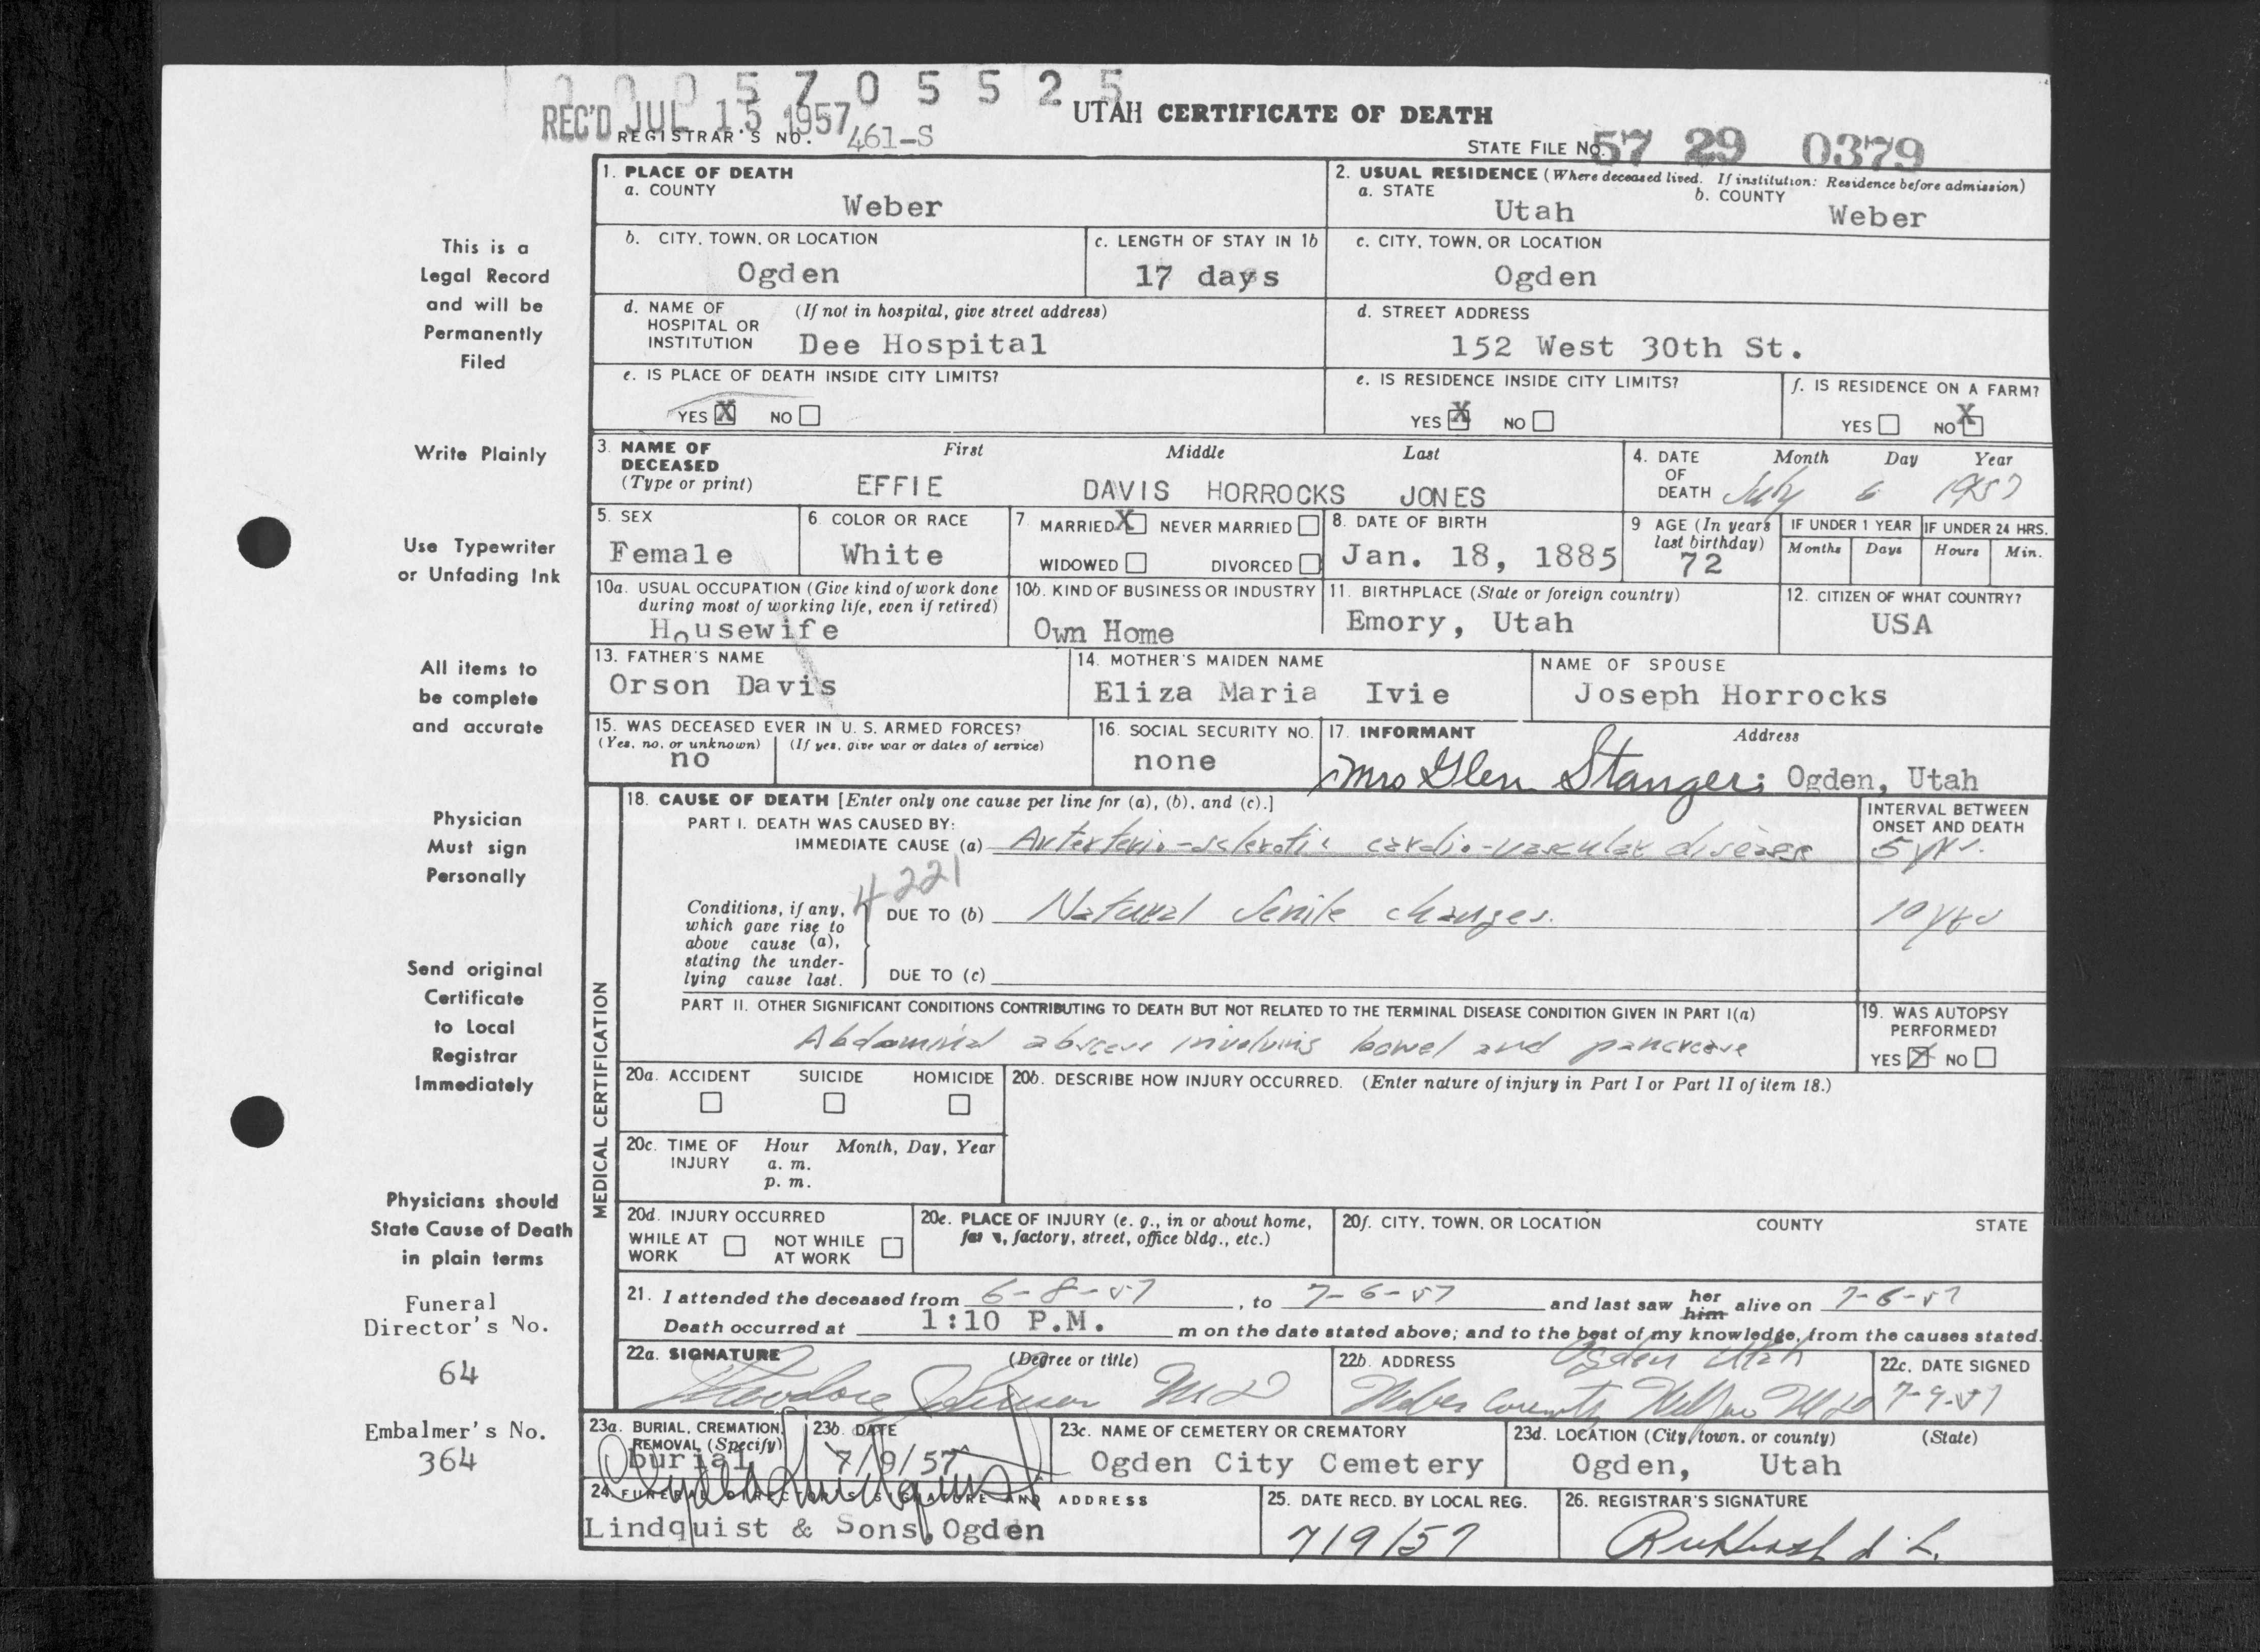 0 0 0 5 7 0 5 5 2 5
REC'D JUL 15 1957
UTAH CERTIFICATE OF DEATH
REGISTRAR'S NO. 461-S
STATE FILE NO. 57 29 0379
This is a
Legal Record
and will be
Permanently
Filed
Write Plainly
Use Typewriter
or Unfading Ink
All items to
be complete
and accurate
Physician
Must sign
Personally
Send original
Certificate
to Local
Registrar
Immediately
Physicians should
State Cause of Death
in plain terms
Funeral
Director's No.
64
Embalmer's No.
364
1. PLACE OF DEATH
a. COUNTY
Weber
2. USUAL RESIDENCE (Where deceased lived. If institution: Residence before admission)
a. STATE
Utah
b. COUNTY
Weber
b. CITY, TOWN, OR LOCATION
Ogden
c. LENGTH OF STAY IN 1b
17 days
c. CITY, TOWN, OR LOCATION
Ogden
d. NAME OF HOSPITAL OR INSTITUTION
(If not in hospital, give street address)
Dee Hospital
d. STREET ADDRESS
152 West 30th St.
e. IS PLACE OF DEATH INSIDE CITY LIMITS?
YES X NO
e. IS RESIDENCE INSIDE CITY LIMITS?
YES X NO
f. IS RESIDENCE ON A FARM?
YES NO X
3. NAME OF DECEASED
(Type or print)
First Middle Last
EFFIE DAVIS HORROCKS JONES
4. DATE OF DEATH
Month Day Year
July 6 1957
5. SEX
Female
6. COLOR OR RACE
White
7. MARRIED X NEVER MARRIED
WIDOWED DIVORCED
8. DATE OF BIRTH
Jan. 18, 1885
9 AGE (In years last birthday)
72
IF UNDER 1 YEAR
Months Days
IF UNDER 24 HRS.
Hours Min.
10a. USUAL OCCUPATION (Give kind of work done
during most of working life, even if retired)
Housewife
10b. KIND OF BUSINESS OR INDUSTRY
Own Home
11. BIRTHPLACE (State or foreign country)
Emory, Utah
12. CITIZEN OF WHAT COUNTRY?
USA
13. FATHER'S NAME
Orson Davis
14. MOTHER'S MAIDEN NAME
Eliza Maria Ivie
NAME OF SPOUSE
Joseph Horrocks
15. WAS DECEASED EVER IN U. S. ARMED FORCES?
(Yes, no, or unknown) (If yes, give war or dates of service)
no
16. SOCIAL SECURITY NO.
none
17. INFORMANT Address
Mrs Glen Stanger; Ogden, Utah
MEDICAL CERTIFICATION
18. CAUSE OF DEATH [Enter only one cause per line for (a), (b), and (c).]
INTERVAL BETWEEN
ONSET AND DEATH
PART I. DEATH WAS CAUSED BY:
IMMEDIATE CAUSE (a) Arterterio-sclerotic cardio-vascular disease 5 yrs.
4221
Conditions, if any,
which gave rise to
above cause (a),
stating the under-
lying cause last.
DUE TO (b) Natural Senile changes. 10 yrs
DUE TO (c)
PART II. OTHER SIGNIFICANT CONDITIONS CONTRIBUTING TO DEATH BUT NOT RELATED TO THE TERMINAL DISEASE CONDITION GIVEN IN PART I(a)
Abdominal abscess involving bowel and pancrease
19. WAS AUTOPSY
PERFORMED?
YES X NO
20a. ACCIDENT SUICIDE HOMICIDE
20b. DESCRIBE HOW INJURY OCCURRED. (Enter nature of injury in Part I or Part II of item 18.)
20c. TIME OF INJURY
Hour Month, Day, Year
a. m.
p. m.
20d. INJURY OCCURRED
WHILE AT WORK NOT WHILE AT WORK
20e. PLACE OF INJURY (e. g., in or about home,
farm, factory, street, office bldg., etc.)
20f. CITY, TOWN, OR LOCATION COUNTY STATE
21. I attended the deceased from 6-8-57, to 7-6-57 and last saw her him alive on 7-6-57
Death occurred at 1:10 P.M. m on the date stated above; and to the best of my knowledge, from the causes stated.
22a. SIGNATURE (Degree or title)
Theodore Johnson MD
22b. ADDRESS
Ogden Utah
Weber County
22c. DATE SIGNED
7-9-57
23a. BURIAL, CREMATION,
REMOVAL (Specify)
burial
23b. DATE
7/9/57
23c. NAME OF CEMETERY OR CREMATORY
Ogden City Cemetery
23d. LOCATION (City, town, or county) (State)
Ogden, Utah
24. FUNERAL DIRECTOR'S SIGNATURE AND ADDRESS
Lindquist & Sons, Ogden
25. DATE RECD. BY LOCAL REG.
7/9/57
26. REGISTRAR'S SIGNATURE